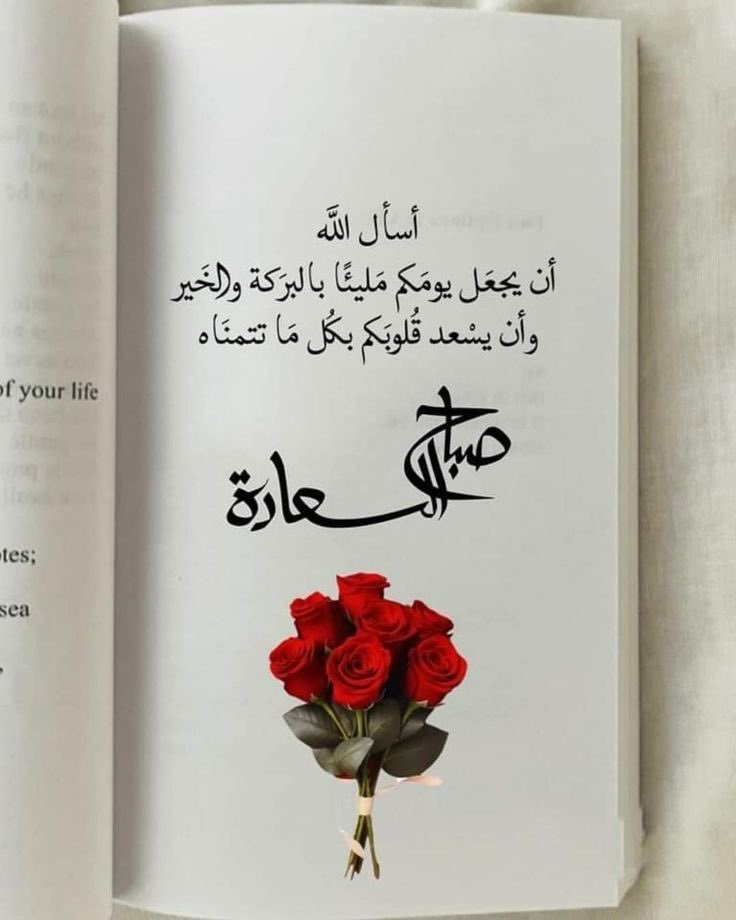 أسأل اللَّه
أن يجعَل يومَكم مَليئًا بالبرَكة والخَير
وأن يسْعد قُلوبَكم بكُل مَا تتمنَاه
صباح
السعادة
of your life
tes;
sea